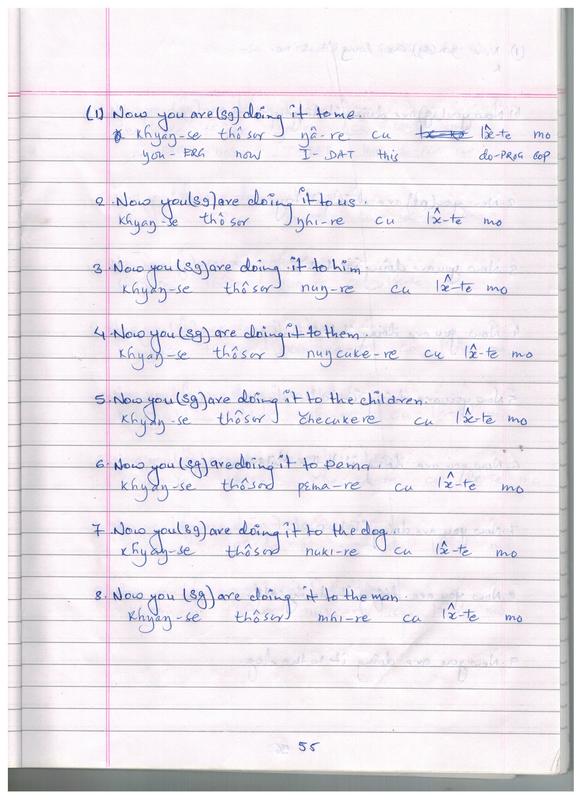 (1) Now you are(sg) doing it to me.
khyaŋ-se thôsor ŋâ-re cu lʌ̂-te mo
you-ERG now I-DAT this do-PROG COP
2. Now you(sg) are doing it to us.
khyaŋ-se thôsor ŋhi-re cu lʌ̂-te mo
3. Now you (sg) are doing it to him
khyaŋ-se thôsor nuŋ-re cu lʌ̂-te mo
4. Now you (sg) are doing it to them.
khyaŋ-se thôsor nuŋcuke-re cu lʌ̂-te mo
5. Now you (sg) are doing it to the children.
khyaŋ-se thôsor čhecukere cu lʌ̂-te mo
6. Now you (sg) are doing it to pema.
khyaŋ-se thôsor pema-re cu lʌ̂-te mo
7. Now you(sg) are doing it to the dog.
khyaŋ-se thôsor nuki-re cu lʌ̂-te mo
8. Now you (sg) are doing it to the man.
khyaŋ-se thôsor mhi-re cu lʌ̂-te mo
55